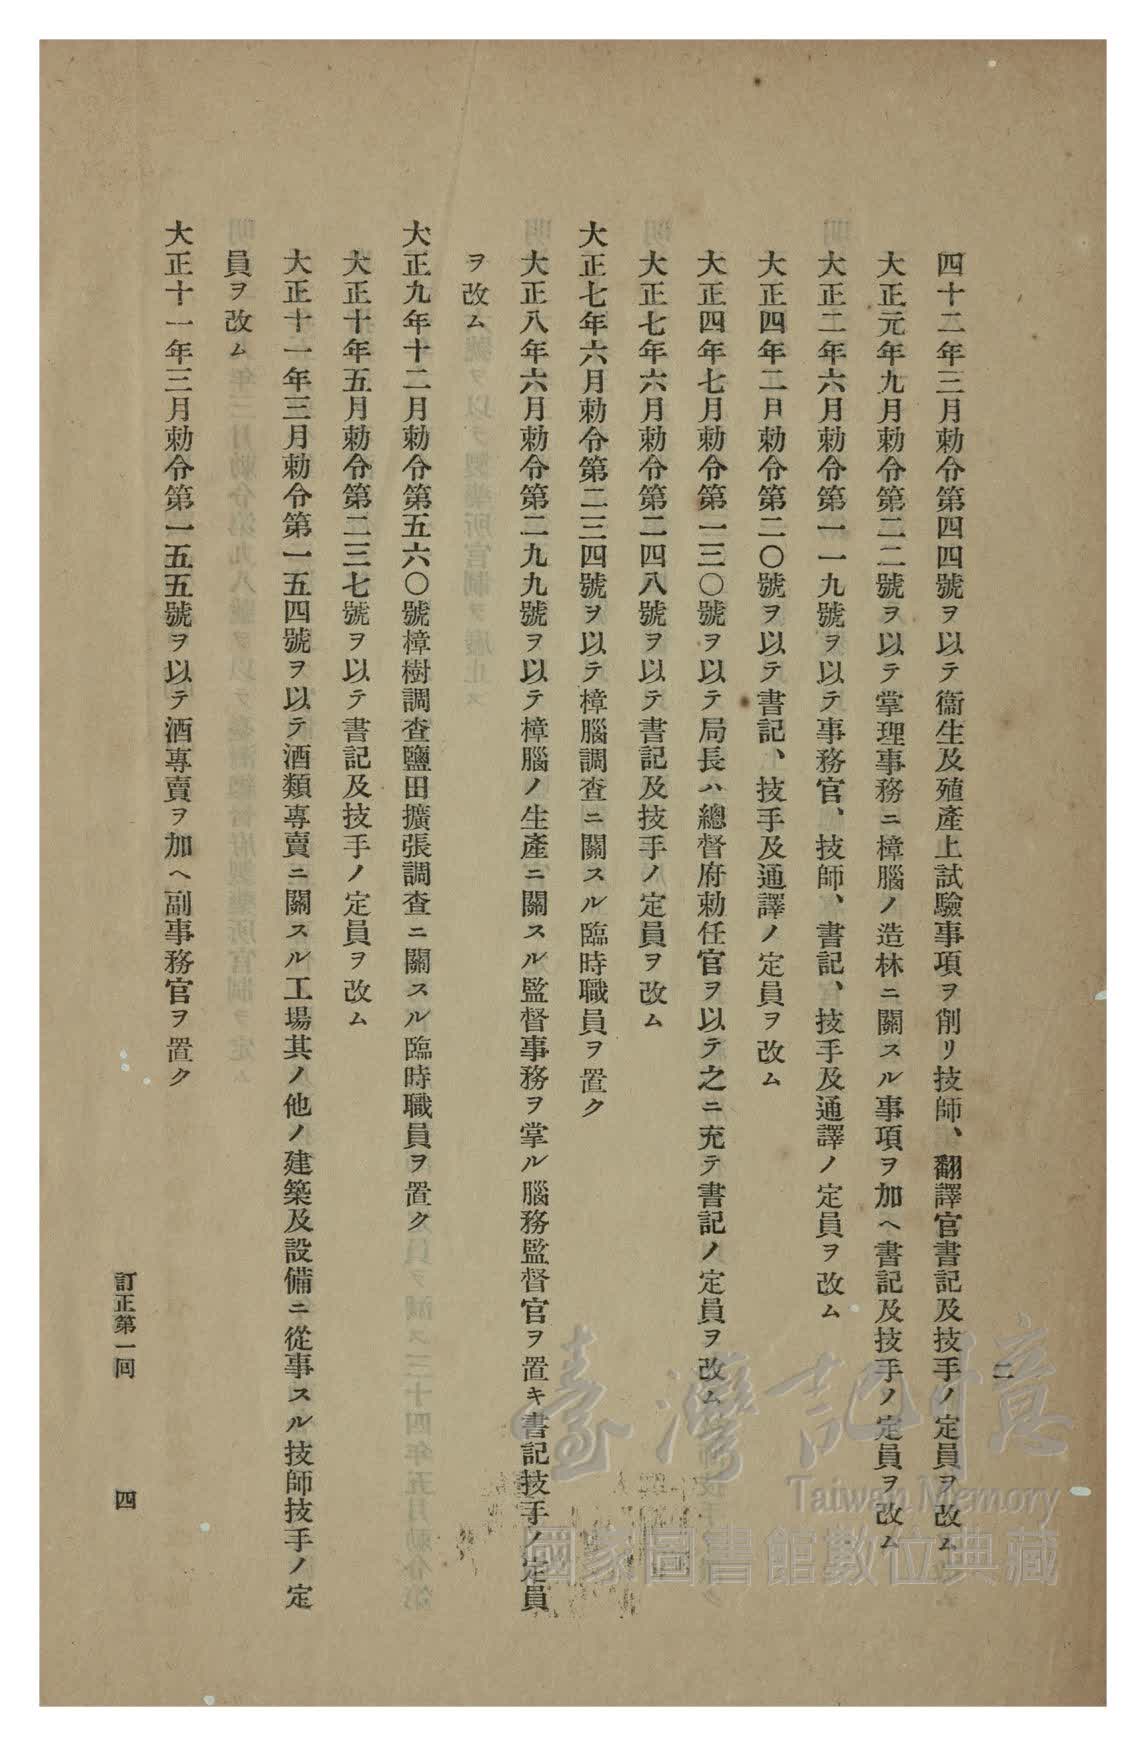 二
四十二年三月勅令第四四號ヲ以テ衞生及殖產上試驗事項ヲ削リ技師、翻譯官書記及技手ノ定員ヲ改ム
大正元年九月勅令第二二號ヲ以テ掌理事務ニ樟腦ノ造林ニ關スル事項ヲ加ヘ書記及技手ノ定員ヲ改ム
大正二年六月勅令第一一九號ヲ以テ事務官、技師、書記、技手及通譯ノ定員ヲ改ム
大正四年二月勅令第二〇號ヲ以テ書記、技手及通譯ノ定員ヲ改ム
大正四年七月勅令第一三〇號ヲ以テ局長ハ總督府勅任官ヲ以テ之ニ充テ書記ノ定員ヲ改ム
大正七年六月勅令第二四八號ヲ以テ書記及技手ノ定員ヲ改ム
大正七年六月勅令第二三四號ヲ以テ樟腦調查ニ關スル臨時職員ヲ置ク
大正八年六月勅令第二九九號ヲ以テ樟腦ノ生產ニ關スル監督事務ヲ掌ル腦務監督官ヲ置キ書記技手ノ定員
ヲ改ム
大正九年十二月勅令第五六〇號樟樹調查鹽田擴張調查ニ關スル臨時職員ヲ置ク
大正十年五月勅令第二三七號ヲ以テ書記及技手ノ定員ヲ改ム
大正十一年三月勅令第一五四號ヲ以テ酒類專賣ニ關スル工場其ノ他ノ建築及設備ニ從事スル技師技手ノ定
員ヲ改ム
大正十一年三月勅令第一五五號ヲ以テ酒專賣ヲ加ヘ副事務官ヲ置ク
訂正第一回
四
臺灣記憶
Taiwan Memory
國家圖書館數位典藏